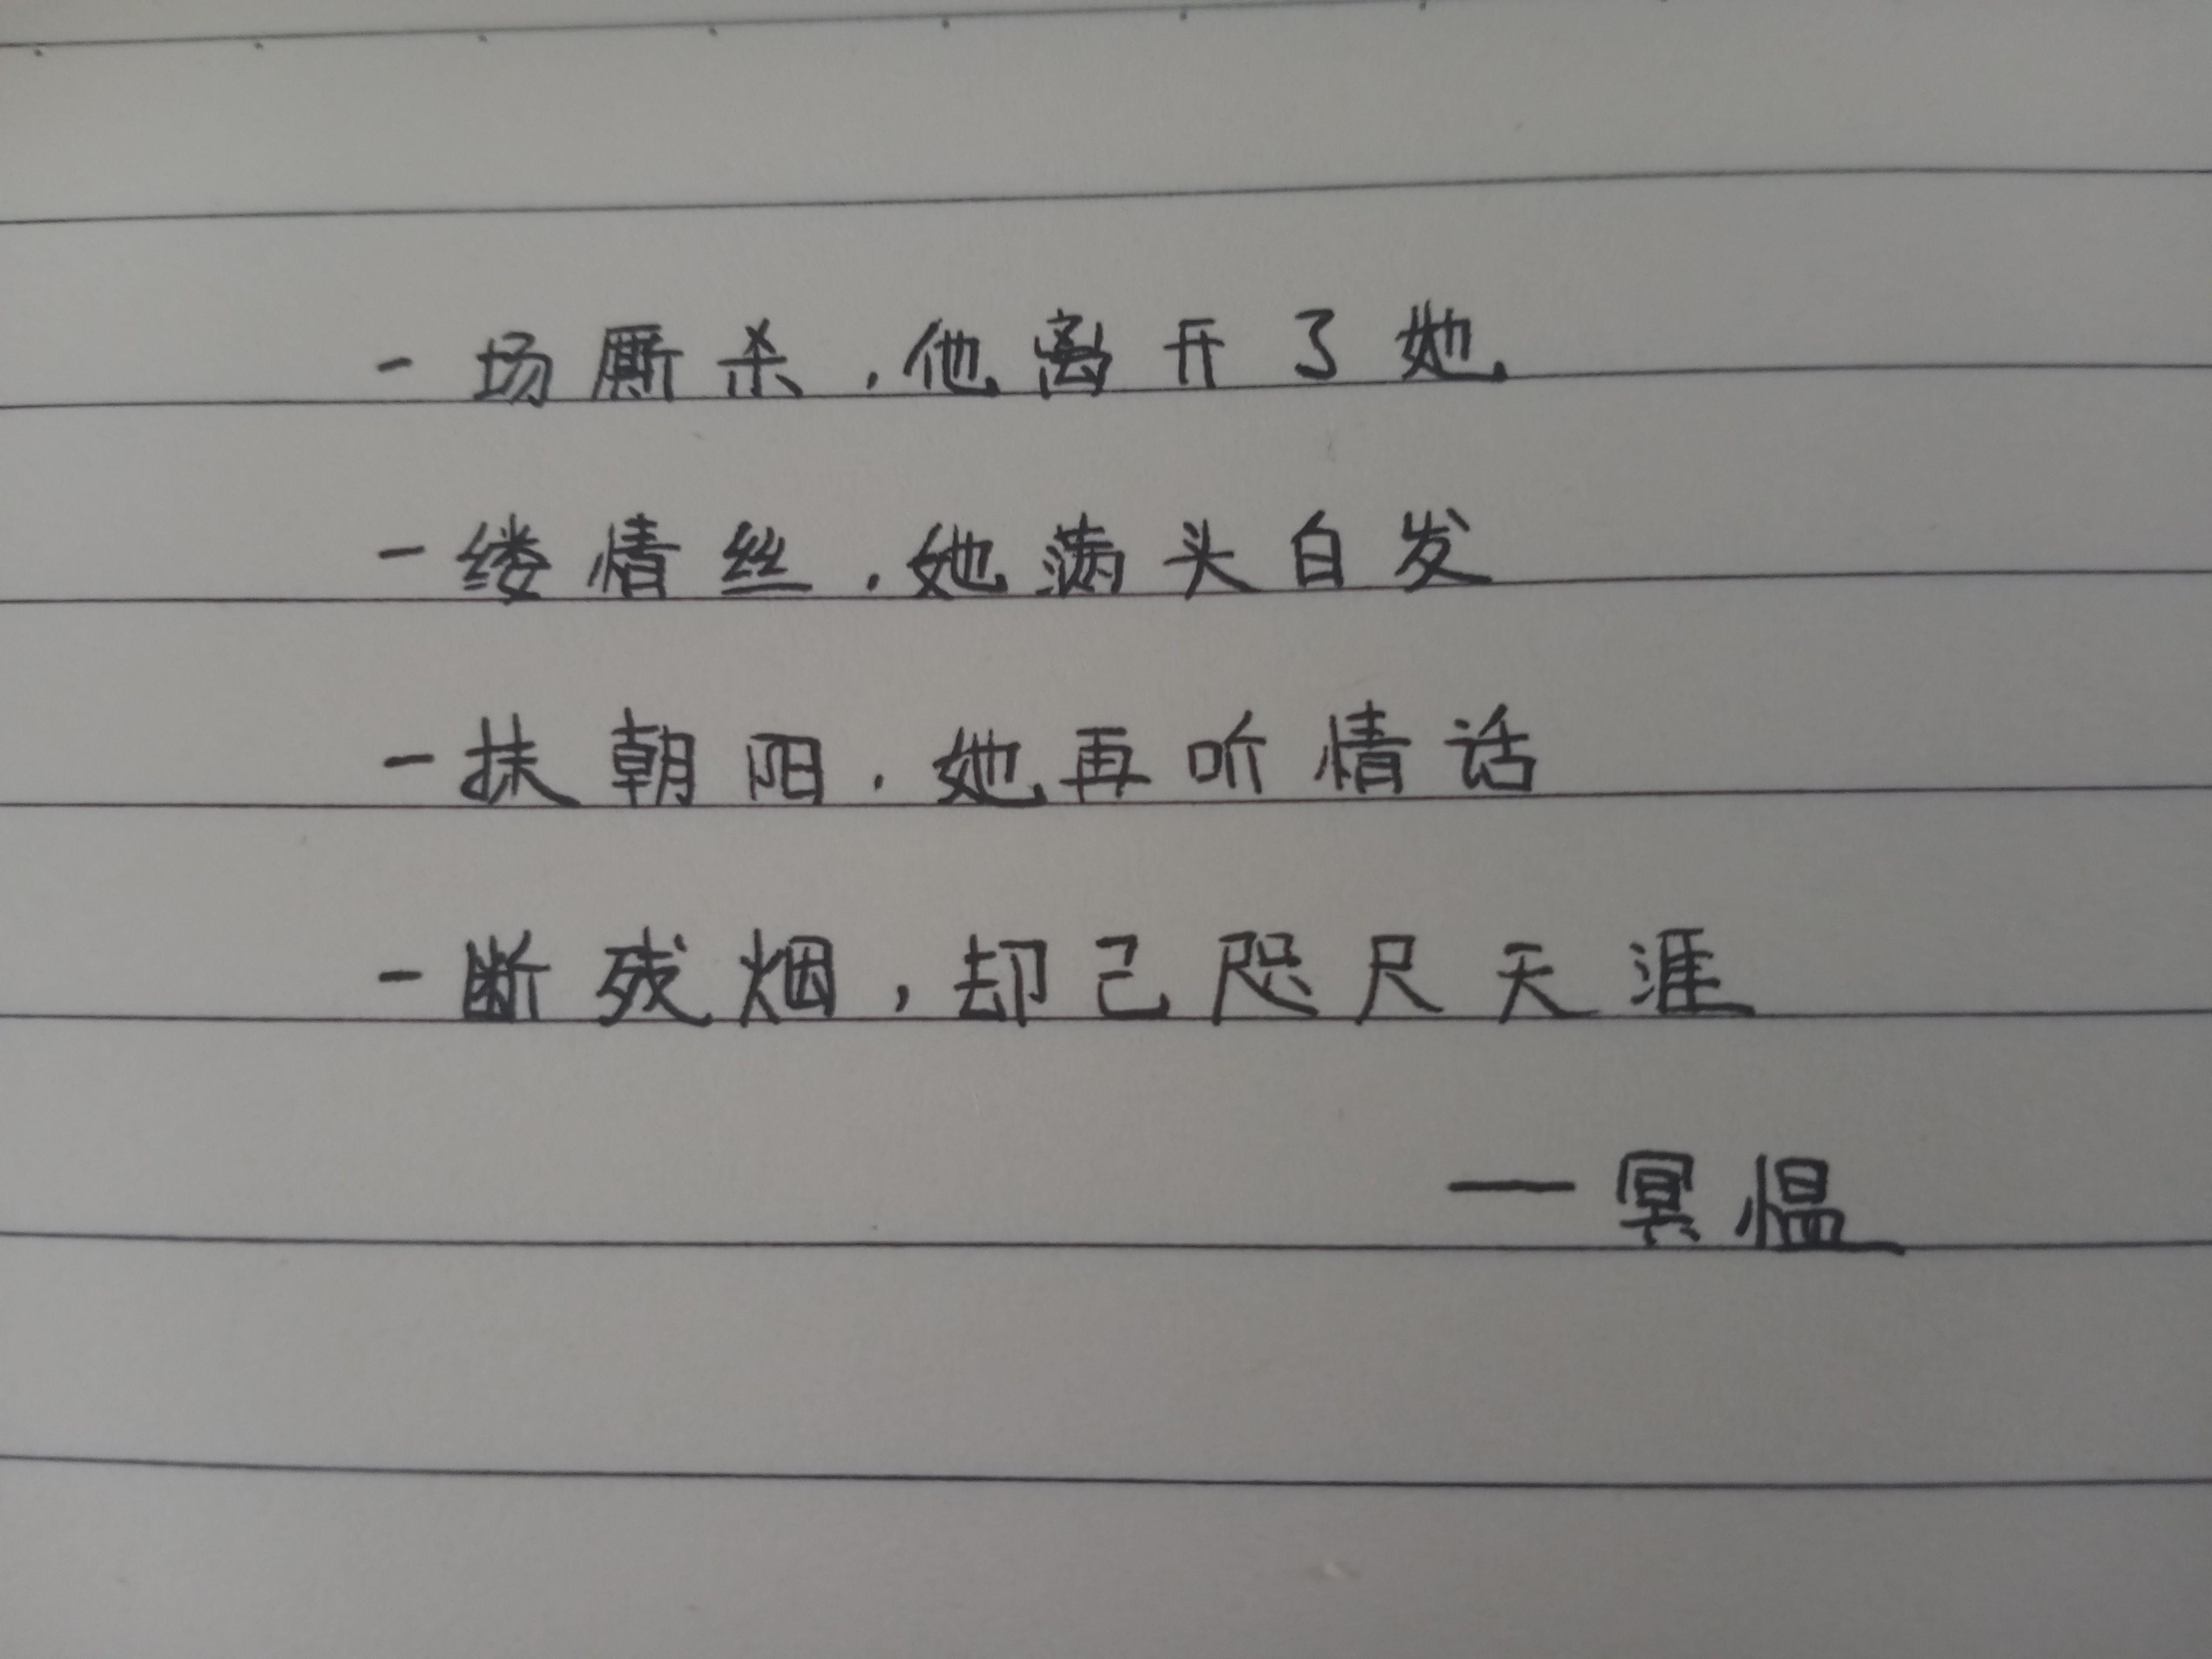 一场厮杀，他离开了她
一缕情丝，她满头白发
一抹朝阳，她再听情话
一断残烟，却已咫尺天涯
——冥愠